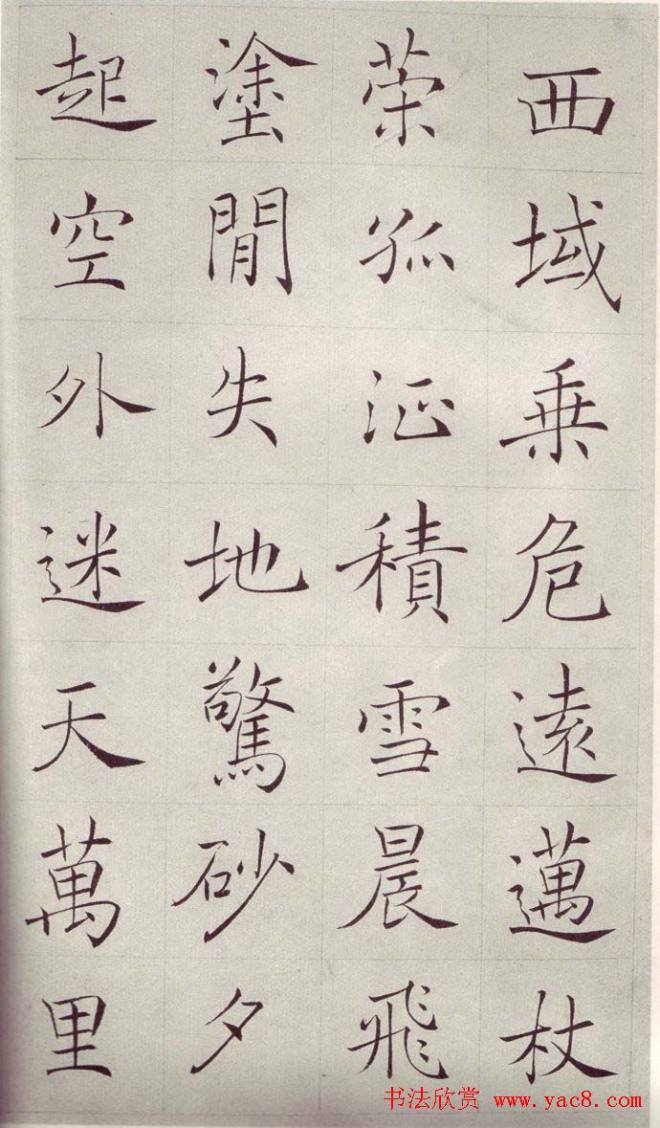 西域乗危遠邁杖
策孤征積雪晨飛
塗閒失地驚砂夕
起空外迷天萬里
书法欣赏 www.yac8.com